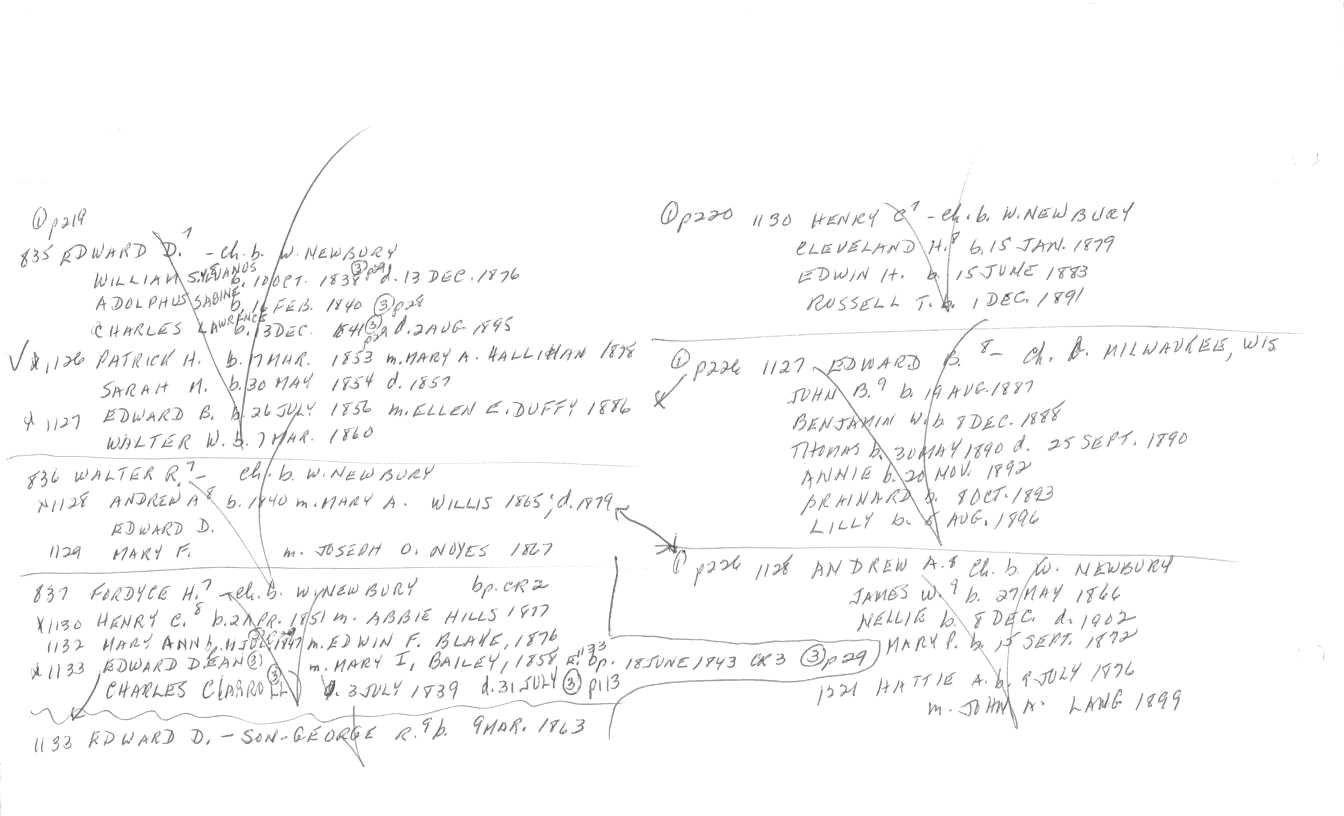 ① p219
835 EDWARD D.⁷ - Ch. b. W. NEWBURY
WILLIAM SYLVANUS⁸ b. 10 OCT. 1838 ③ p29 d. 13 DEC. 1876
ADOLPHUS SABINE b. 16 FEB. 1840 ③ p28
CHARLES LAWRENCE b. 13 DEC. 1841 ③ d. 2 AUG. 1895
✓ x, 1126 PATRICK H. b. 7 MAR. 1853 m. MARY A. HALLIHAN 1878
SARAH M. b. 30 MAY 1854 d. 1857
x 1127 EDWARD B. b. 26 JULY 1856 m. ELLEN E. DUFFY 1886
WALTER W. b. 7 MAR. 1860
836 WALTER R.⁷ - Ch. b. W. NEWBURY
x1128 ANDREW A⁸ b. 1840 m. MARY A. WILLIS 1865; d. 1879
EDWARD D.
1129 MARY F. m. JOSEPH O. NOYES 1867
837 FORDYCE H.⁷ - Ch. b. W. NEWBURY bp. CR2
x1130 HENRY C.⁸ b. 2 APR. 1851 m. ABBIE HILLS 1877
1132 MARY ANN b. 1847 m. EDWIN F. BLAKE, 1876
x 1133 EDWARD DEAN ③ m. MARY I. BAILEY, 1858 E. 1133 bp. 18 JUNE 1843 CR3 ③ p29
CHARLES CARROLL ③ b. 3 JULY 1839 d. 31 JULY ③ p113
1133 EDWARD D. - SON - GEORGE R.⁹ b. 9 MAR. 1863
① p220 1130 HENRY C⁷ - Ch. b. W. NEWBURY
CLEVELAND H.⁸ b. 15 JAN. 1879
EDWIN H. b. 15 JUNE 1883
RUSSELL T. b. 1 DEC. 1891
① p226 1127 EDWARD B.⁸ - Ch. b. MILWAUKEE, WIS
x JOHN B.⁹ b. 19 AUG. 1887
BENJAMIN W. b. 8 DEC. 1888
THOMAS b. 30 MAY 1890 d. 25 SEPT. 1890
ANNIE b. 20 NOV. 1892
BRAINARD b. 8 OCT. 1893
LILLY b. 8 AUG. 1896
① p226 1128 ANDREW A.⁸ Ch. b. W. NEWBURY
JAMES W.⁹ b. 27 MAY 1866
NELLIE b. 8 DEC. d. 1902
MARY P. b. 15 SEPT. 1872
1221 HATTIE A. b. 9 JULY 1876
m. JOHN A. LANG 1899